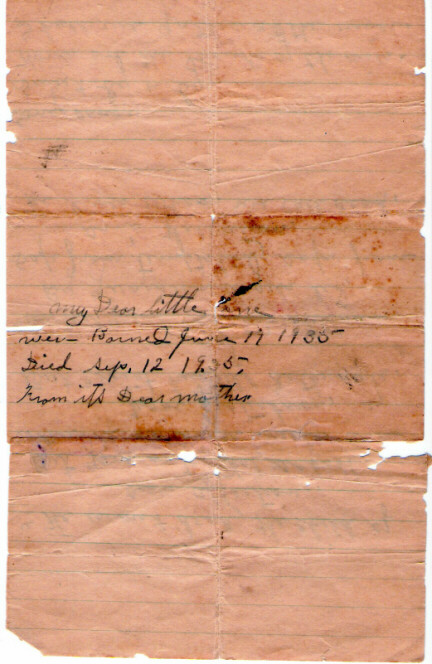 my Dear little one
wer Borned June 17 1935
Died Sep. 12 1935,
From it's Dear mother